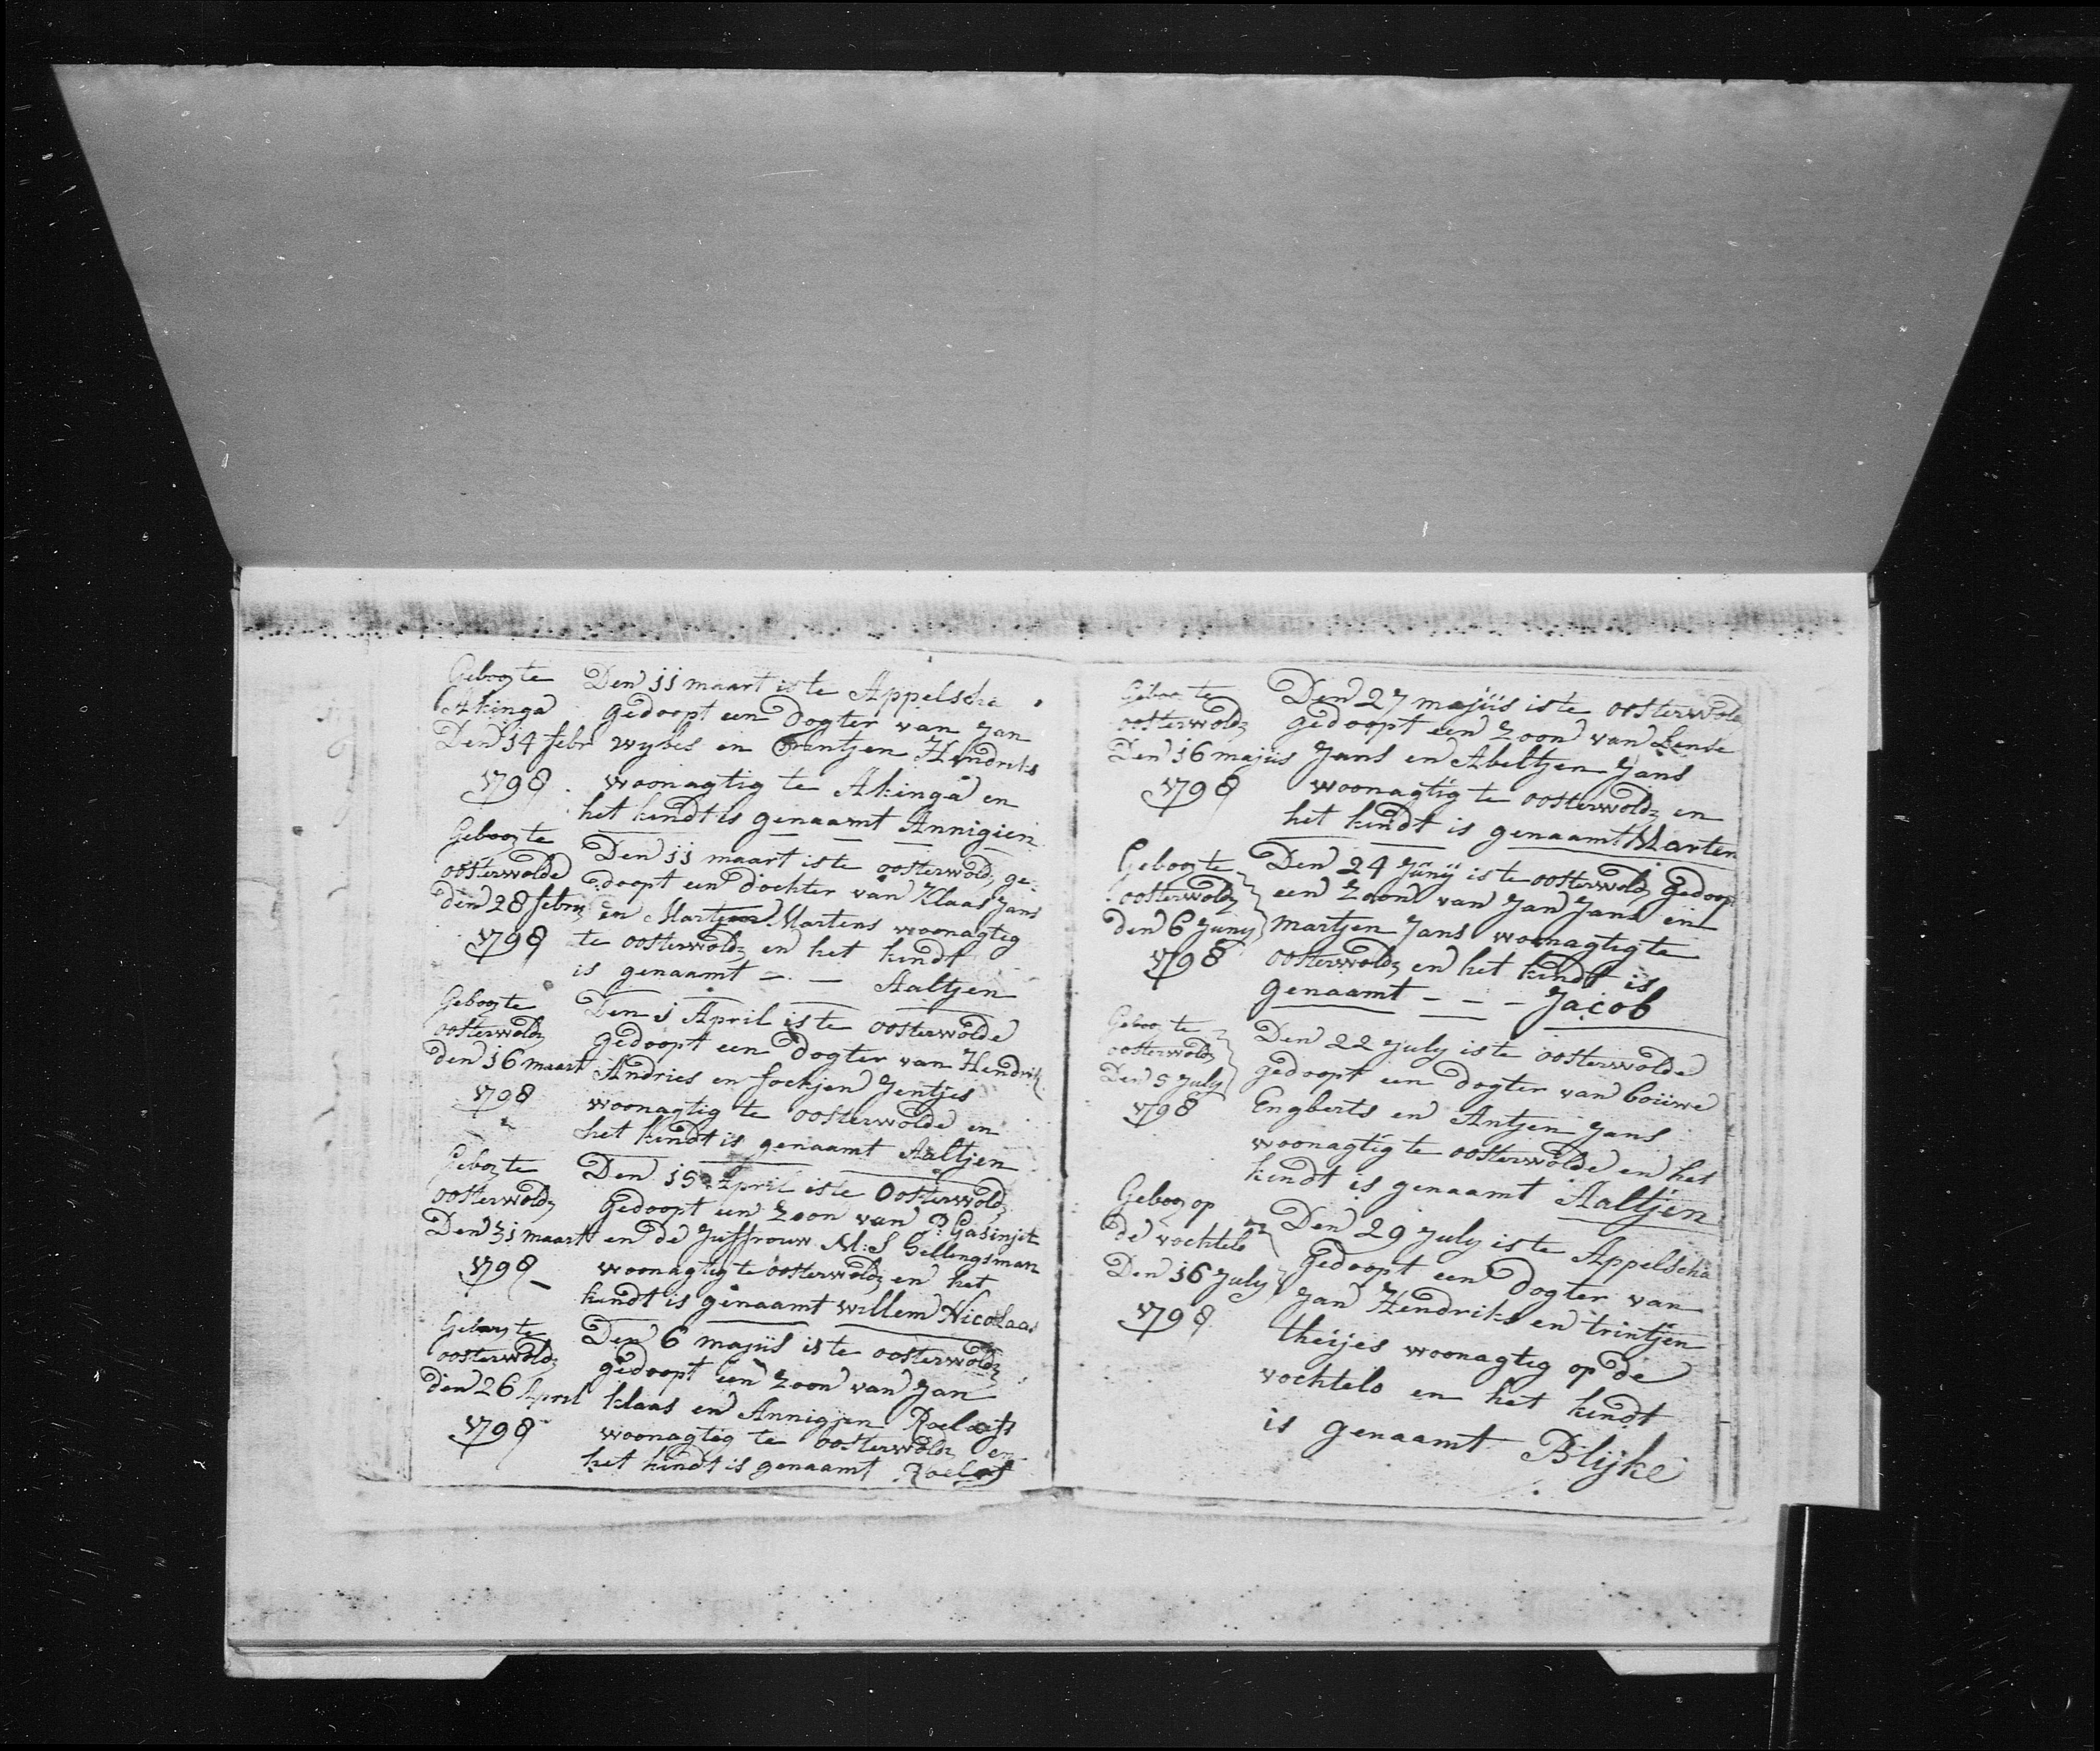 Geboorte
Akinga
Den 14 febr
1798
Den 11 maart is te Appelscha
gedoopt een Dogter van Jan
wybes en Trintjen Hendriks
woonagtig te Akinga en
het kindt is genaamt Annigien
Geboorte
oosterwolde
den 28 febru
1798
Den 11 maart is te oosterwold ge-
doopt een dochter van Klaas Jans
en Martjen Martens woonagtig
te oosterwold en het kindt
is genaamt - - Aaltjen
Geboorte
oosterwold
den 16 maart
1798
Den 1 April is te oosterwolde
Gedoopt een Dogter van Hendrik
Andries en fockjen Jentjes
woonagtig te oosterwolde en
het kindt is genaamt Aaltjen
Geboorte
oosterwold
Den 31 maart
1798
Den 15 April is te Oosterwold
Gedoopt een Zoon van
en de Juffrouw M: S Gellengsman
woonagtig te oosterwold en het
kindt is genaamt willem Nicolaas
Geboorte
oosterwold
den 26 April
1798
Den 6 majus is te oosterwold
gedoopt een Zoon van Jan
klaas en Annigjen Roelofs
woonagtig te oosterwold en
het kindt is genaamt Roelof
Geboorte
oosterwold
Den 16 majus
1798
Den 27 majus is te oosterwold
gedoopt een Zoon van Lense
Jans en Abeltjen Jans
woonagtig te oosterwold en
het kindt is genaamt Marten
Geboorte
oosterwold
den 6 Juny
1798
Den 24 Juny is te oosterwold Gedoopt
een Zoon van Jan Jans en
martjen Jans woonagtig te
oosterwold en het kindt is
genaamt - - - Jacob
Geboorte
oosterwold
Den 5 July
1798
Den 22 July is te oosterwolde
gedoopt een dogter van bouwe
Engberts en Antjen Jans
woonagtig te oosterwolde en het
kindt is genaamt Aaltjen
Geboor op
de vochtelo
Den 16 July
1798
Den 29 July is te Appelscha
Gedoopt een Dogter van
Jan Hendriks en trintjen
theijes woonagtig op de
vochtelo en het kindt
is genaamt Blijke